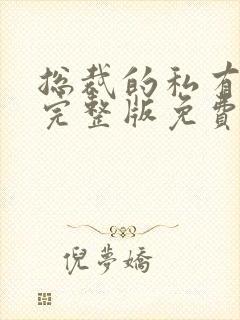 总裁的私有
完整版免費
倪夢嬌